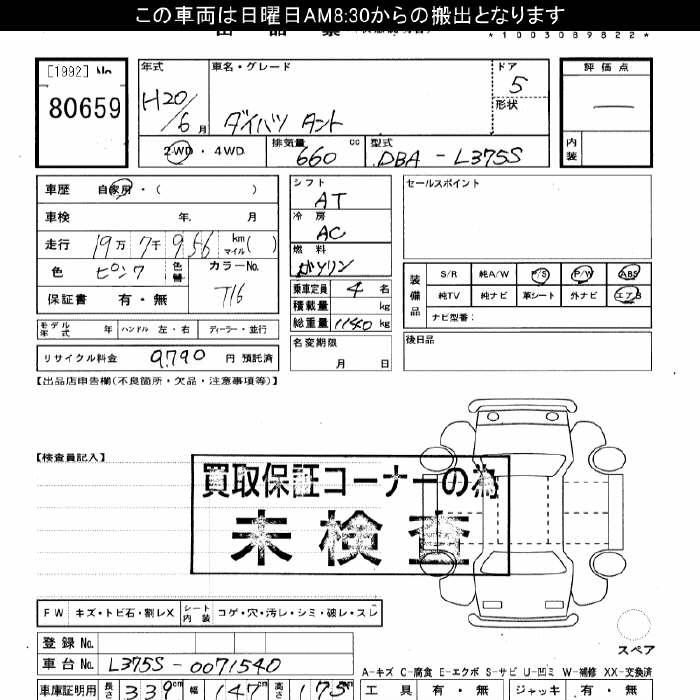 この車両は日曜日AM8:30からの搬出となります
*1003089822*
[1992] No
80659
年式 H20/6月
車名・グレード ダイハツ タント
ドア 5
形状
評価点 —
内装
2WD・4WD
排気量 660 cc
型式 DBA-L375S
車歴 自家用・( )
車検 年. 月
走行 19万7千956 km マイル( )
色 ピンク 色替
カラーNo. T16
保証書 有・無
モデル年式 年 ハンドル 左・右 ディーラー・並行
リサイクル料金 9,790 円 預託済
シフト AT
冷房 AC
燃料 ガソリン
乗車定員 4 名
積載量 kg
総重量 1140 kg
名変期限 月 日
セールスポイント
装備品
S/R 純A/W P/S P/W ABS
純TV 純ナビ 革シート 外ナビ エアB
ナビ型番:
後日品
【出品店申告欄(不良箇所・欠品・注意事項等)】
【検査員記入】
買取保証コーナーの為
未検査
FW キズ・トビ石・割レX シート内装 コゲ・穴・汚レ・シミ・破レ・スレ
登録 No.
車台 No. L375S-0071540
車庫証明用 長さ 339cm 幅 147cm 高さ 175cm
スペア
A-キズ C-腐食 E-エクボ S-サビ U-凹ミ W-補修 XX-交換済
工具 有・無 ジャッキ 有・無